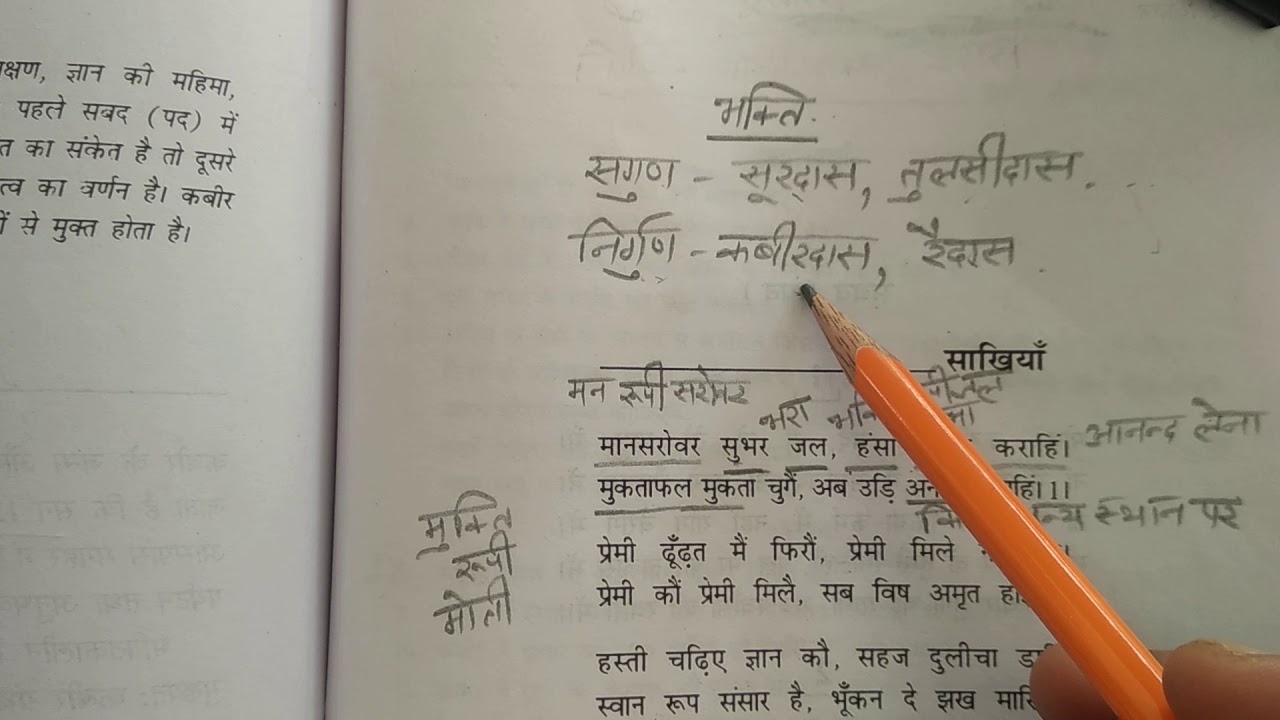 क्षण, ज्ञान की महिमा,
पहले सबद (पद) में
त का संकेत है तो दूसरे
त्व का वर्णन है। कबीर
ों से मुक्त होता है।
भक्ति.
सगुण - सूरदास, तुलसीदास.
निर्गुण - कबीरदास, रैदास.
साखियाँ
मन रूपी सरोवर
भरा
आनन्द लेना
मानसरोवर सुभर जल, हंसा कराहिं।
मुकताफल मुकता चुगैं, अब उड़ि हिं।1।
स्थान पर
मुक्ति
रूपी
मोती
प्रेमी ढूँढ़त मैं फिरौं, प्रेमी मिले
प्रेमी कौं प्रेमी मिलै, सब विष अमृत
हस्ती चढ़िए ज्ञान कौ, सहज दुलीचा
स्वान रूप संसार है, भूँकन दे झख